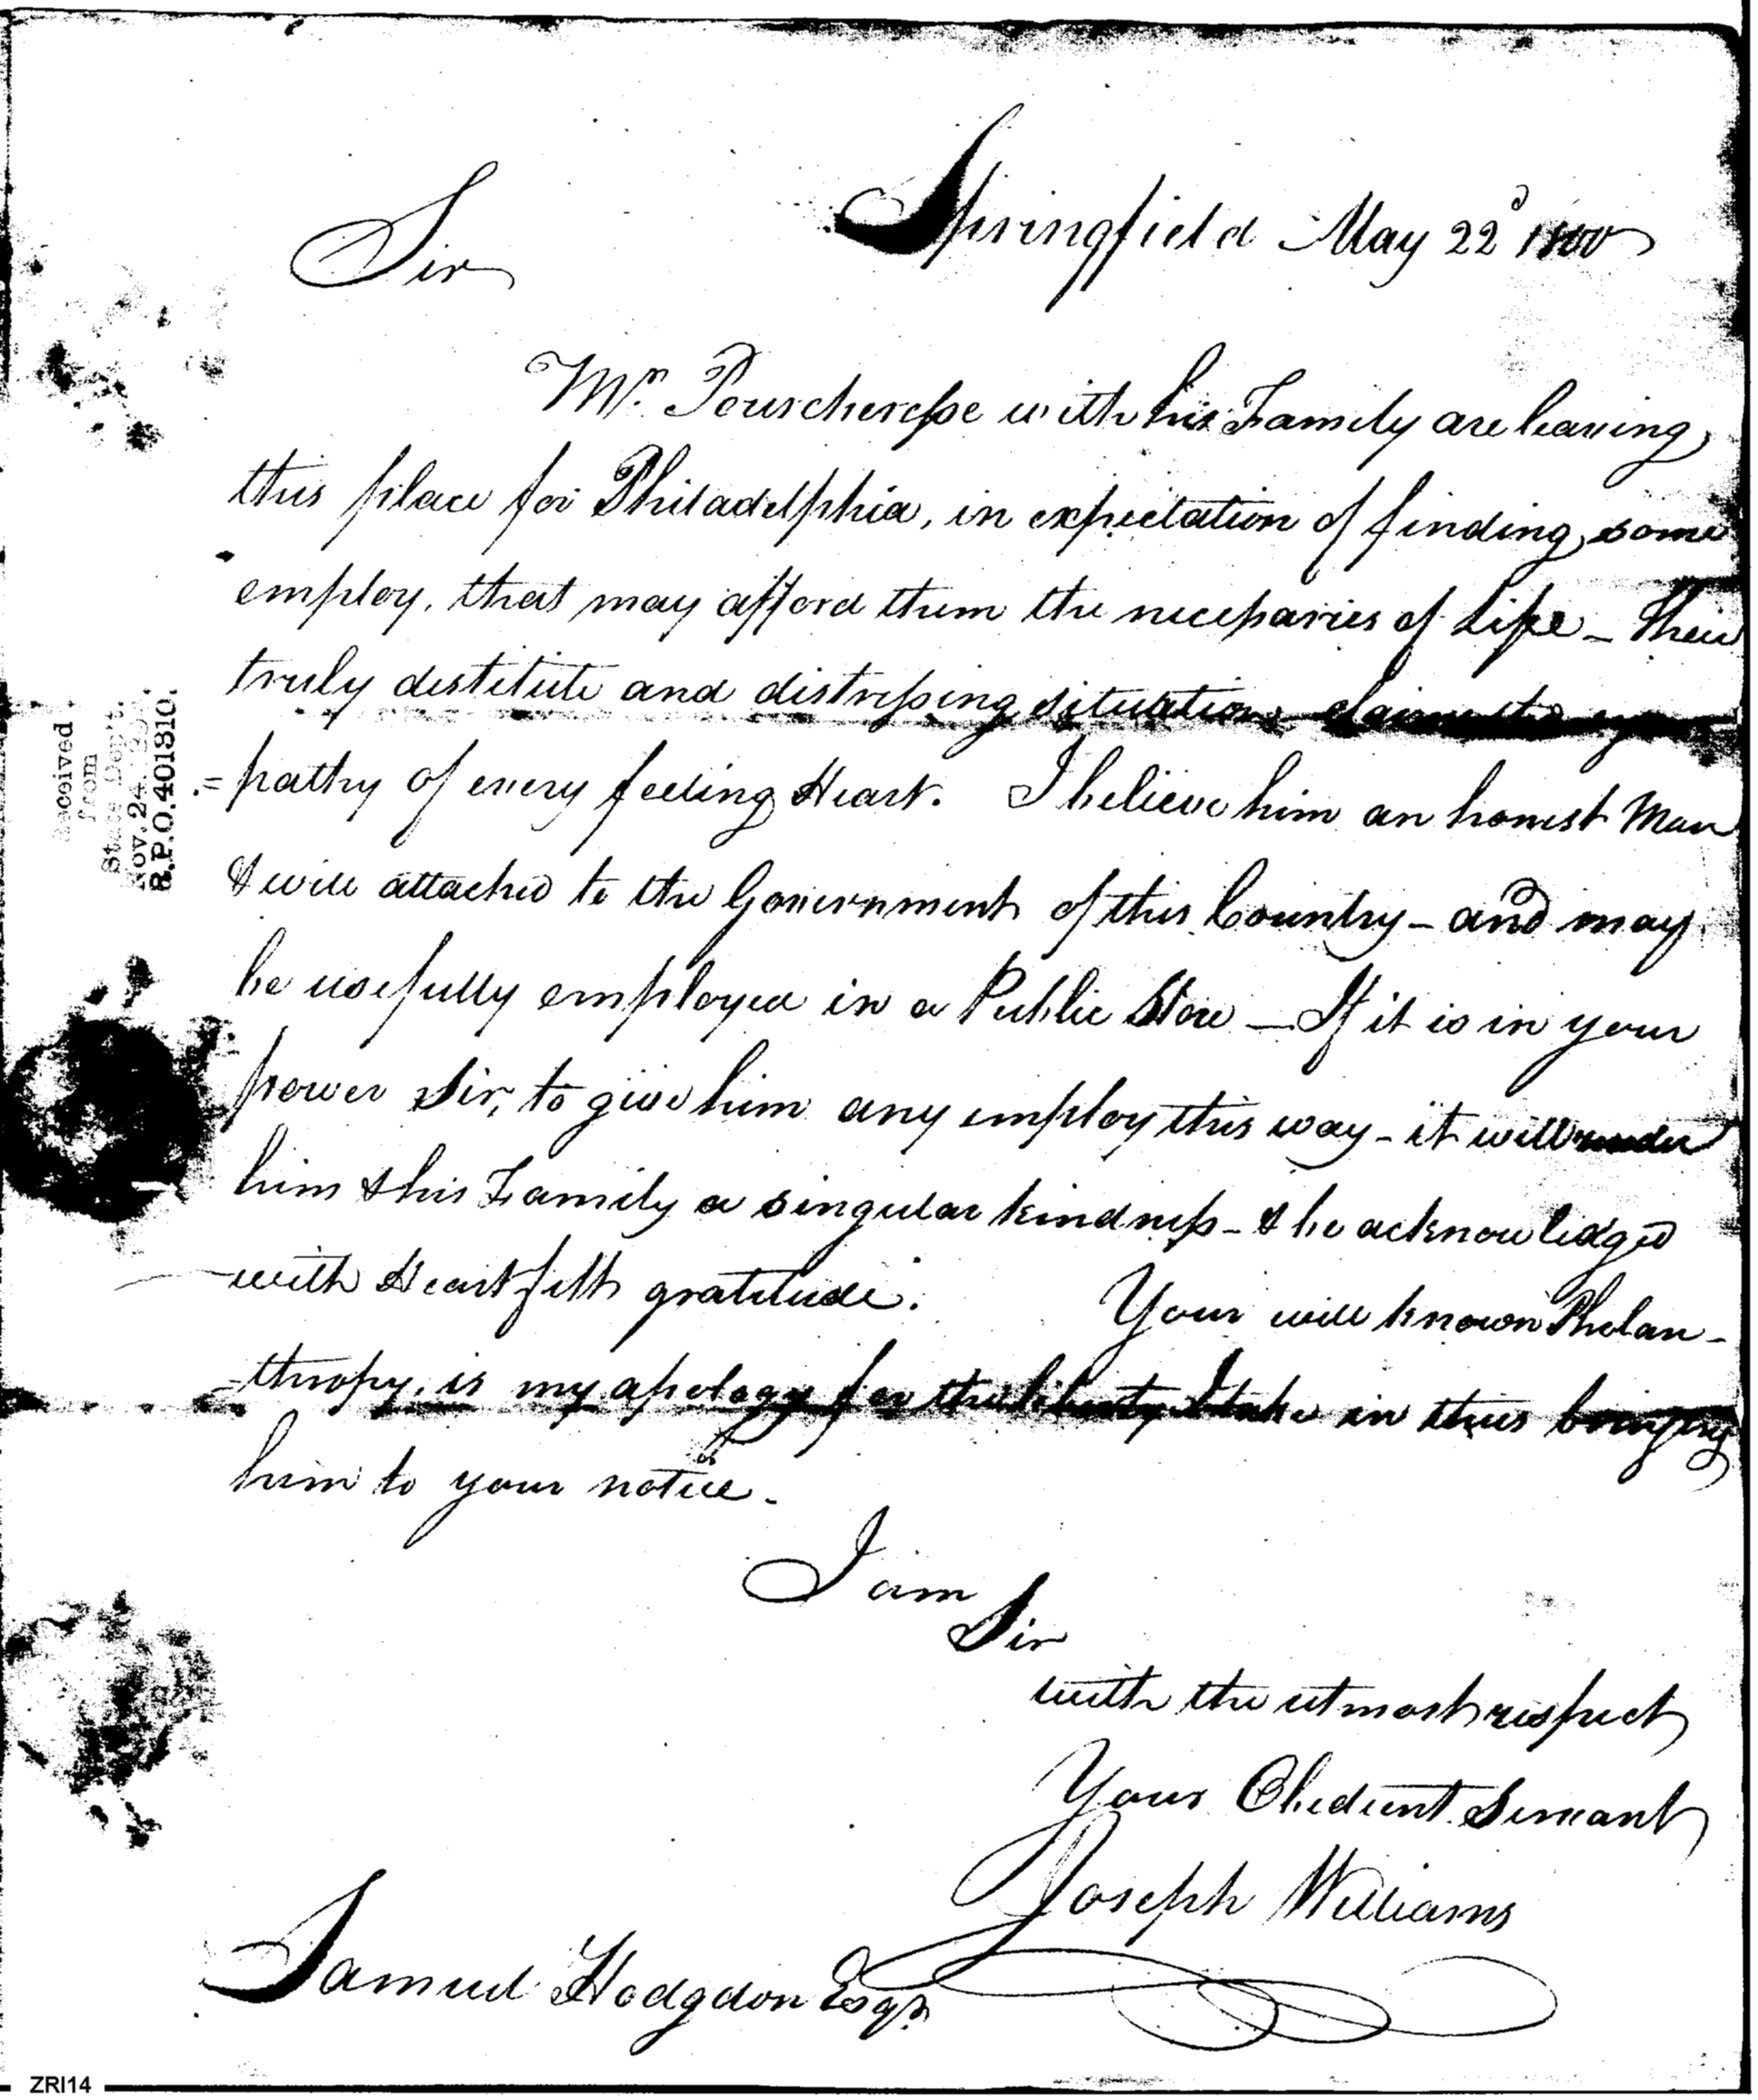 Springfield May 22d 1800
Sir
Mr. Pourcheresse with his Family are leaving
this place for Philadelphia, in expectation of finding some
employ, that may afford them the necessaries of Life _ Their
truly destitute and distressing situation claims the sym
=pathy of every feeling Heart. I believe him an honest Man
& well attached to the Government of this Country – and may
be usefully employed in a Public Store — If it is in your
power Sir, to give him any employ this way – it will render
him & his Family a singular kindness – & be acknowledged
with Heartfelt gratitude. Your well known Philan-
=thropy, is my apology for the liberty I take in thus bringing
him to your notice.
I am
Sir
with the utmost respect
Your Obedient Servant
Joseph Williams
Samuel Hodgdon Esqr.
Received
from
State Dept.
Nov. 24.
S.P.O. 401310.
ZRI14